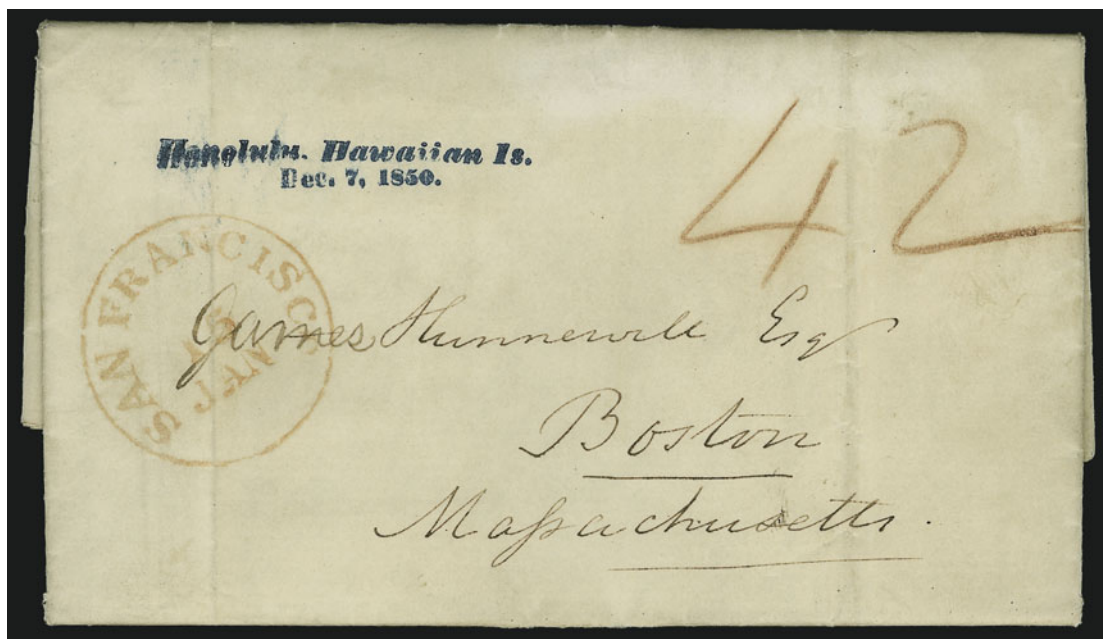 Honolulu. Hawaiian Is.
Dec. 7, 1850.
42
SAN FRANCISCO
15
JAN
James Hunnewell Esq
Boston
Massachusetts.